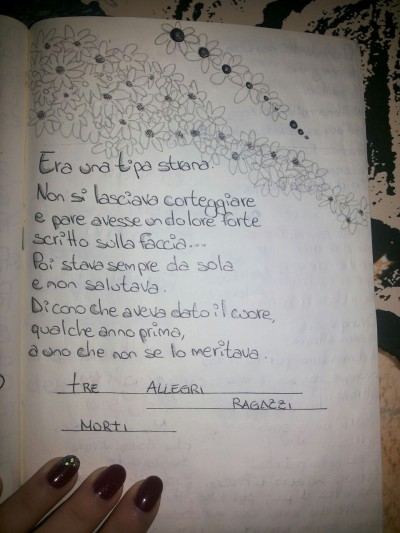 Era una tipa strana.
Non si lasciava corteggiare
e pare avesse un dolore forte
scritto sulla faccia...
Poi stava sempre da sola
e non salutava.
Dicono che aveva dato il cuore,
qualche anno prima,
a uno che non se lo meritava.
tRE ALLEGRI
RAGAZZI
MORTI